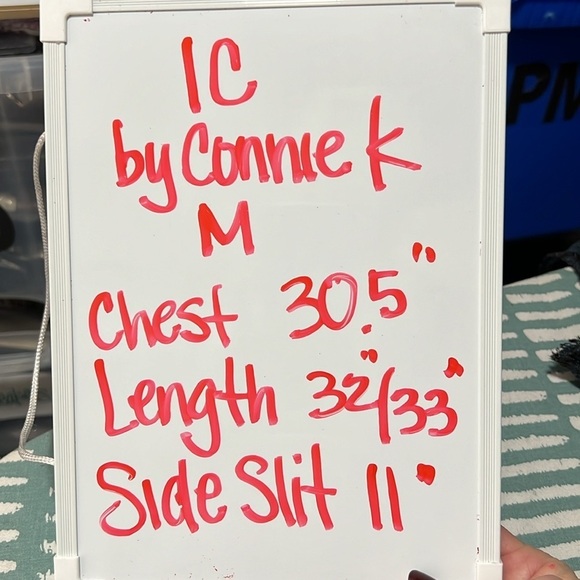 IC
by Connie K
M
Chest 30.5"
Length 32"/33"
Side Slit 11"
PM